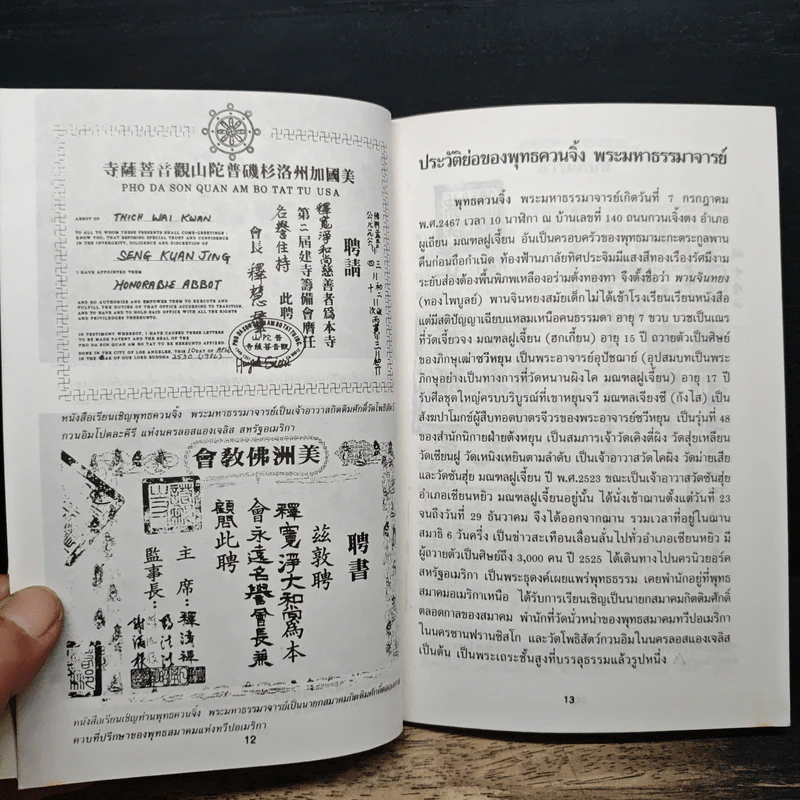 美國加州洛杉磯普陀山觀音菩薩寺
PHO DA SON QUAN AM BO TAT TU USA
ABBOT OF THICH WAI KWAN
TO ALL TO WHOM THESE PRESENTS SHALL COME-GREETINGS:
KNOW YOU, THAT REPOSING SPECIAL TRUST AND CONFIDENCE
IN THE INTERGRITY, DILIGENCE AND DISCRETION OF
SENG KUAN JING
I HAVE APPOINTED THEM
HONORABLE ABBOT
AND DO AUTHORIZE AND EMPOWER THEM TO EXECUTE AND
FULFILL THE DUTIES OF THAT OFFICE ACCORDING TO TRADITION,
AND TO HAVE AND TO HOLD SAID OFFICE WITH ALL THE RIGHTS
AND PRIVILEGES THEREUNTO.
IN TESTIMONY WHEREOF, I HAVE CAUSED THESE LETTERS
TO BE MADE PATENT AND THE SEAL OF THE
PHO DA SON QUAN AM BO TAT TU BE HEREUNTO AFFIXED.
DONE IN THE CITY OF LOS ANGELES, THIS
OF OUR LORD BUDDHA 2530 (1986)
聘請
釋寬淨和尚慈善者爲本寺
第二屆建寺籌備會膺任
名譽住持 此聘
會長 釋慧
หนังสือเรียนเชิญพุทธควนจิ้ง พระมหาธรรมาจารย์เป็นเจ้าอาวาสกิตติมศักดิ์วัดโพธิสัตว์
กวนอิมโปตละคีรี แห่งนครลอสแองเจลิส สหรัฐอเมริกา
美洲佛教會
聘書
茲敦聘
釋寬淨大和尚爲本
會永遠名譽會長兼
顧問此聘
主席：釋
監事長：
หนังสือเรียนเชิญท่านพุทธควนจิ้ง พระมหาธรรมาจารย์เป็นนายกสมาคมกิตติมศักดิ์ตลอดกาล
ควบที่ปรึกษาของพุทธสมาคมแห่งทวีปอเมริกา
12
ประวัติย่อของพุทธควนจิ้ง พระมหาธรรมาจารย์
พุทธควนจิ้ง พระมหาธรรมาจารย์เกิดวันที่ 7 กรกฎาคม
พ.ศ.2467 เวลา 10 นาฬิกา ณ บ้านเลขที่ 140 ถนนกวนเจิ้งตง อำเภอ
ผูเถียน มณฑลฝูเจี้ยน อันเป็นครอบครัวของพุทธมามะกะตระกูลพาน
คืนก่อนถือกำเนิด ท้องฟ้านภาลัยทิศประจิมมีแสงสีทองเรืองรัศมีงาม
ระยับส่องต้องพื้นพิภพเหลืองอร่ามดั่งทองทา จึงตั้งชื่อว่า พานจินหยง
(ทองไพบูลย์) พานจินหยงสมัยเด็กไม่ได้เข้าโรงเรียนเรียนหนังสือ
แต่มีสติปัญญาเฉียบแหลมเหนือคนธรรมดา อายุ 7 ขวบ บวชเป็นเณร
ที่วัดเจี้ยวจง มณฑลฝูเจี้ยน (ฮกเกี้ยน) อายุ 15 ปี ถวายตัวเป็นศิษย์
ของภิกษุเฒ่าซวีหยุน เป็นพระอาจารย์อุปัชฌาย์ (อุปสมบทเป็นพระ
ภิกษุอย่างเป็นทางการที่วัดหนานผิงไค มณฑลฝูเจี้ยน) อายุ 17 ปี
รับศีลชุดใหญ่ครบบริบูรณ์ที่เขาหยุนจวี มณฑลเจียงซี (กังไส) เป็น
สังฆปาโมกข์ผู้สืบทอดบาตรจีวรของพระอาจารย์ซวีหยุน เป็นรุ่นที่ 48
ของสำนักนิกายฝ่ายต้งหยุน เป็นสมภารเจ้าวัดเคิงตี่ผิง วัดสุ่ยเหลียน
วัดเซียนฝู วัดเหนิงเหยินตามลำดับ เป็นเจ้าอาวาสวัดไคผิง วัดม่ายเสีย
และวัดซันฮุ่ย มณฑลฝูเจี้ยน ปี พ.ศ.2523 ขณะเป็นเจ้าอาวาสวัดซันฮุ่ย
อำเภอเซียนหยิว มณฑลฝูเจี้ยนอยู่นั้น ได้นั่งเข้าฌานตั้งแต่วันที่ 23
จนถึงวันที่ 29 ธันวาคม จึงได้ออกจากฌาน รวมเวลาที่อยู่ในฌาน
สมาธิ 6 วันครึ่ง เป็นข่าวสะเทือนเลื่อนลั่นไปทั่วอำเภอเซียนหยิว มี
ผู้ถวายตัวเป็นศิษย์ถึง 3,000 คน ปี 2525 ได้เดินทางไปนครนิวยอร์ค
สหรัฐอเมริกา เป็นพระธุดงค์เผยแพร่พุทธธรรม เคยพำนักอยู่ที่พุทธ
สมาคมอเมริกาเหนือ ได้รับการเรียนเชิญเป็นนายกสมาคมกิตติมศักดิ์
ตลอดกาลของสมาคม พำนักที่วัดนั่วหน่าของพุทธสมาคมทวีปอเมริกา
ในนครซานฟรานซิสโก และวัดโพธิสัตว์กวนอิมในนครลอสแองเจลิส
เป็นต้น เป็นพระเถระชั้นสูงที่บรรลุธรรมแล้วรูปหนึ่ง
13